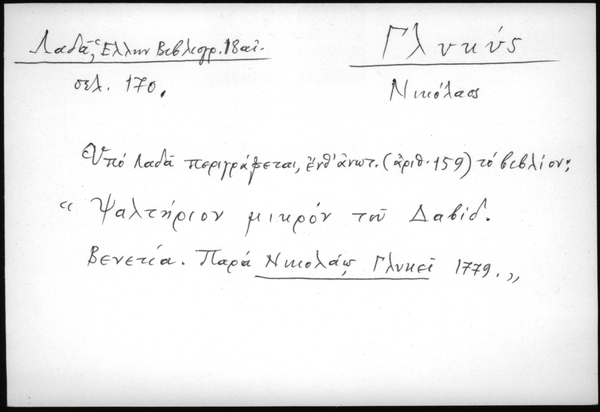 Λαδᾶ, Ἑλλην Βιβλιογρ. 18 αἰ.
σελ. 170.
Γλυκύς
Νικόλαος
Ὑπό Λαδᾶ περιγράφεται, ἔνθ' ἀνωτ. (ἀριθ. 159) τό βιβλίον:
“ Ψαλτήριον μικρόν τοῦ Δαβίδ.
Βενετία. Παρά Νικολάῳ Γλυκεῖ 1779. „